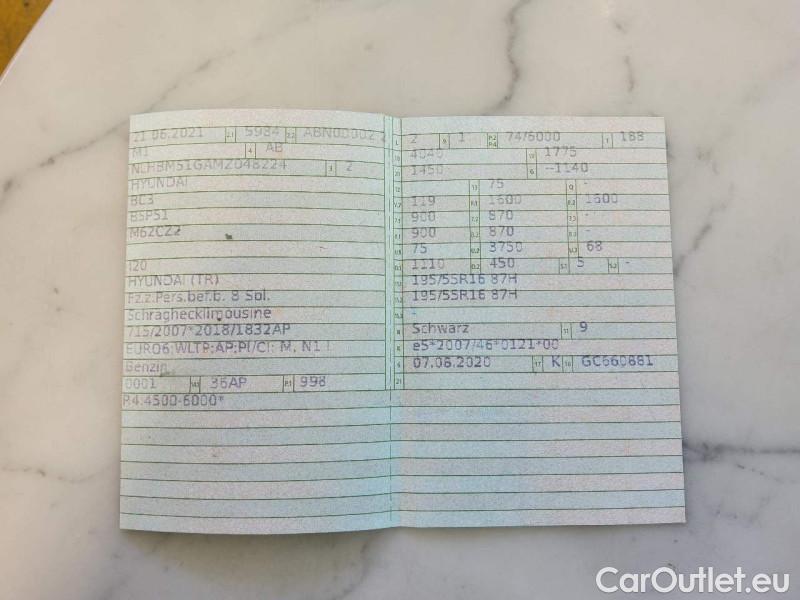 21.06.2021 2.1 5984 2.2
M1 4 AB
NLHBM51GAMZ048224 3 2
HYUNDAI
BC3
B5P51
M62CZ2
I20
HYUNDAI (TR)
Fz.z.Pers.bef.b. 8 Spl.
Schräghecklimousine
715/2007*2018/1832AP
EURO6;WLTP;AP;PI/CI; M, N1 I
Benzin
0001 V.9 36AP P.1 998
P.4:4500-6000*
L 2 9 1 P.2 P.4 74/6000 T 188
18 4040 19 1775
20 1450- G --1140
12 - 13 75 Q -
V.7 119 F.1 1600 F.2 1600
7.1 900 7.2 870 7.3 -
8.1 900 8.2 870 8.3 -
U.1 75 U.2 3750 U.3 68
O.1 1110 O.2 450 S.1 5 S.2 -
15.1 195/55R16 87H
15.2 195/55R16 87H
R Schwarz 11 9
K e5*2007/46*0121*00
6 07.08.2020 17 K 16 GC660881
21
CarOutlet.eu